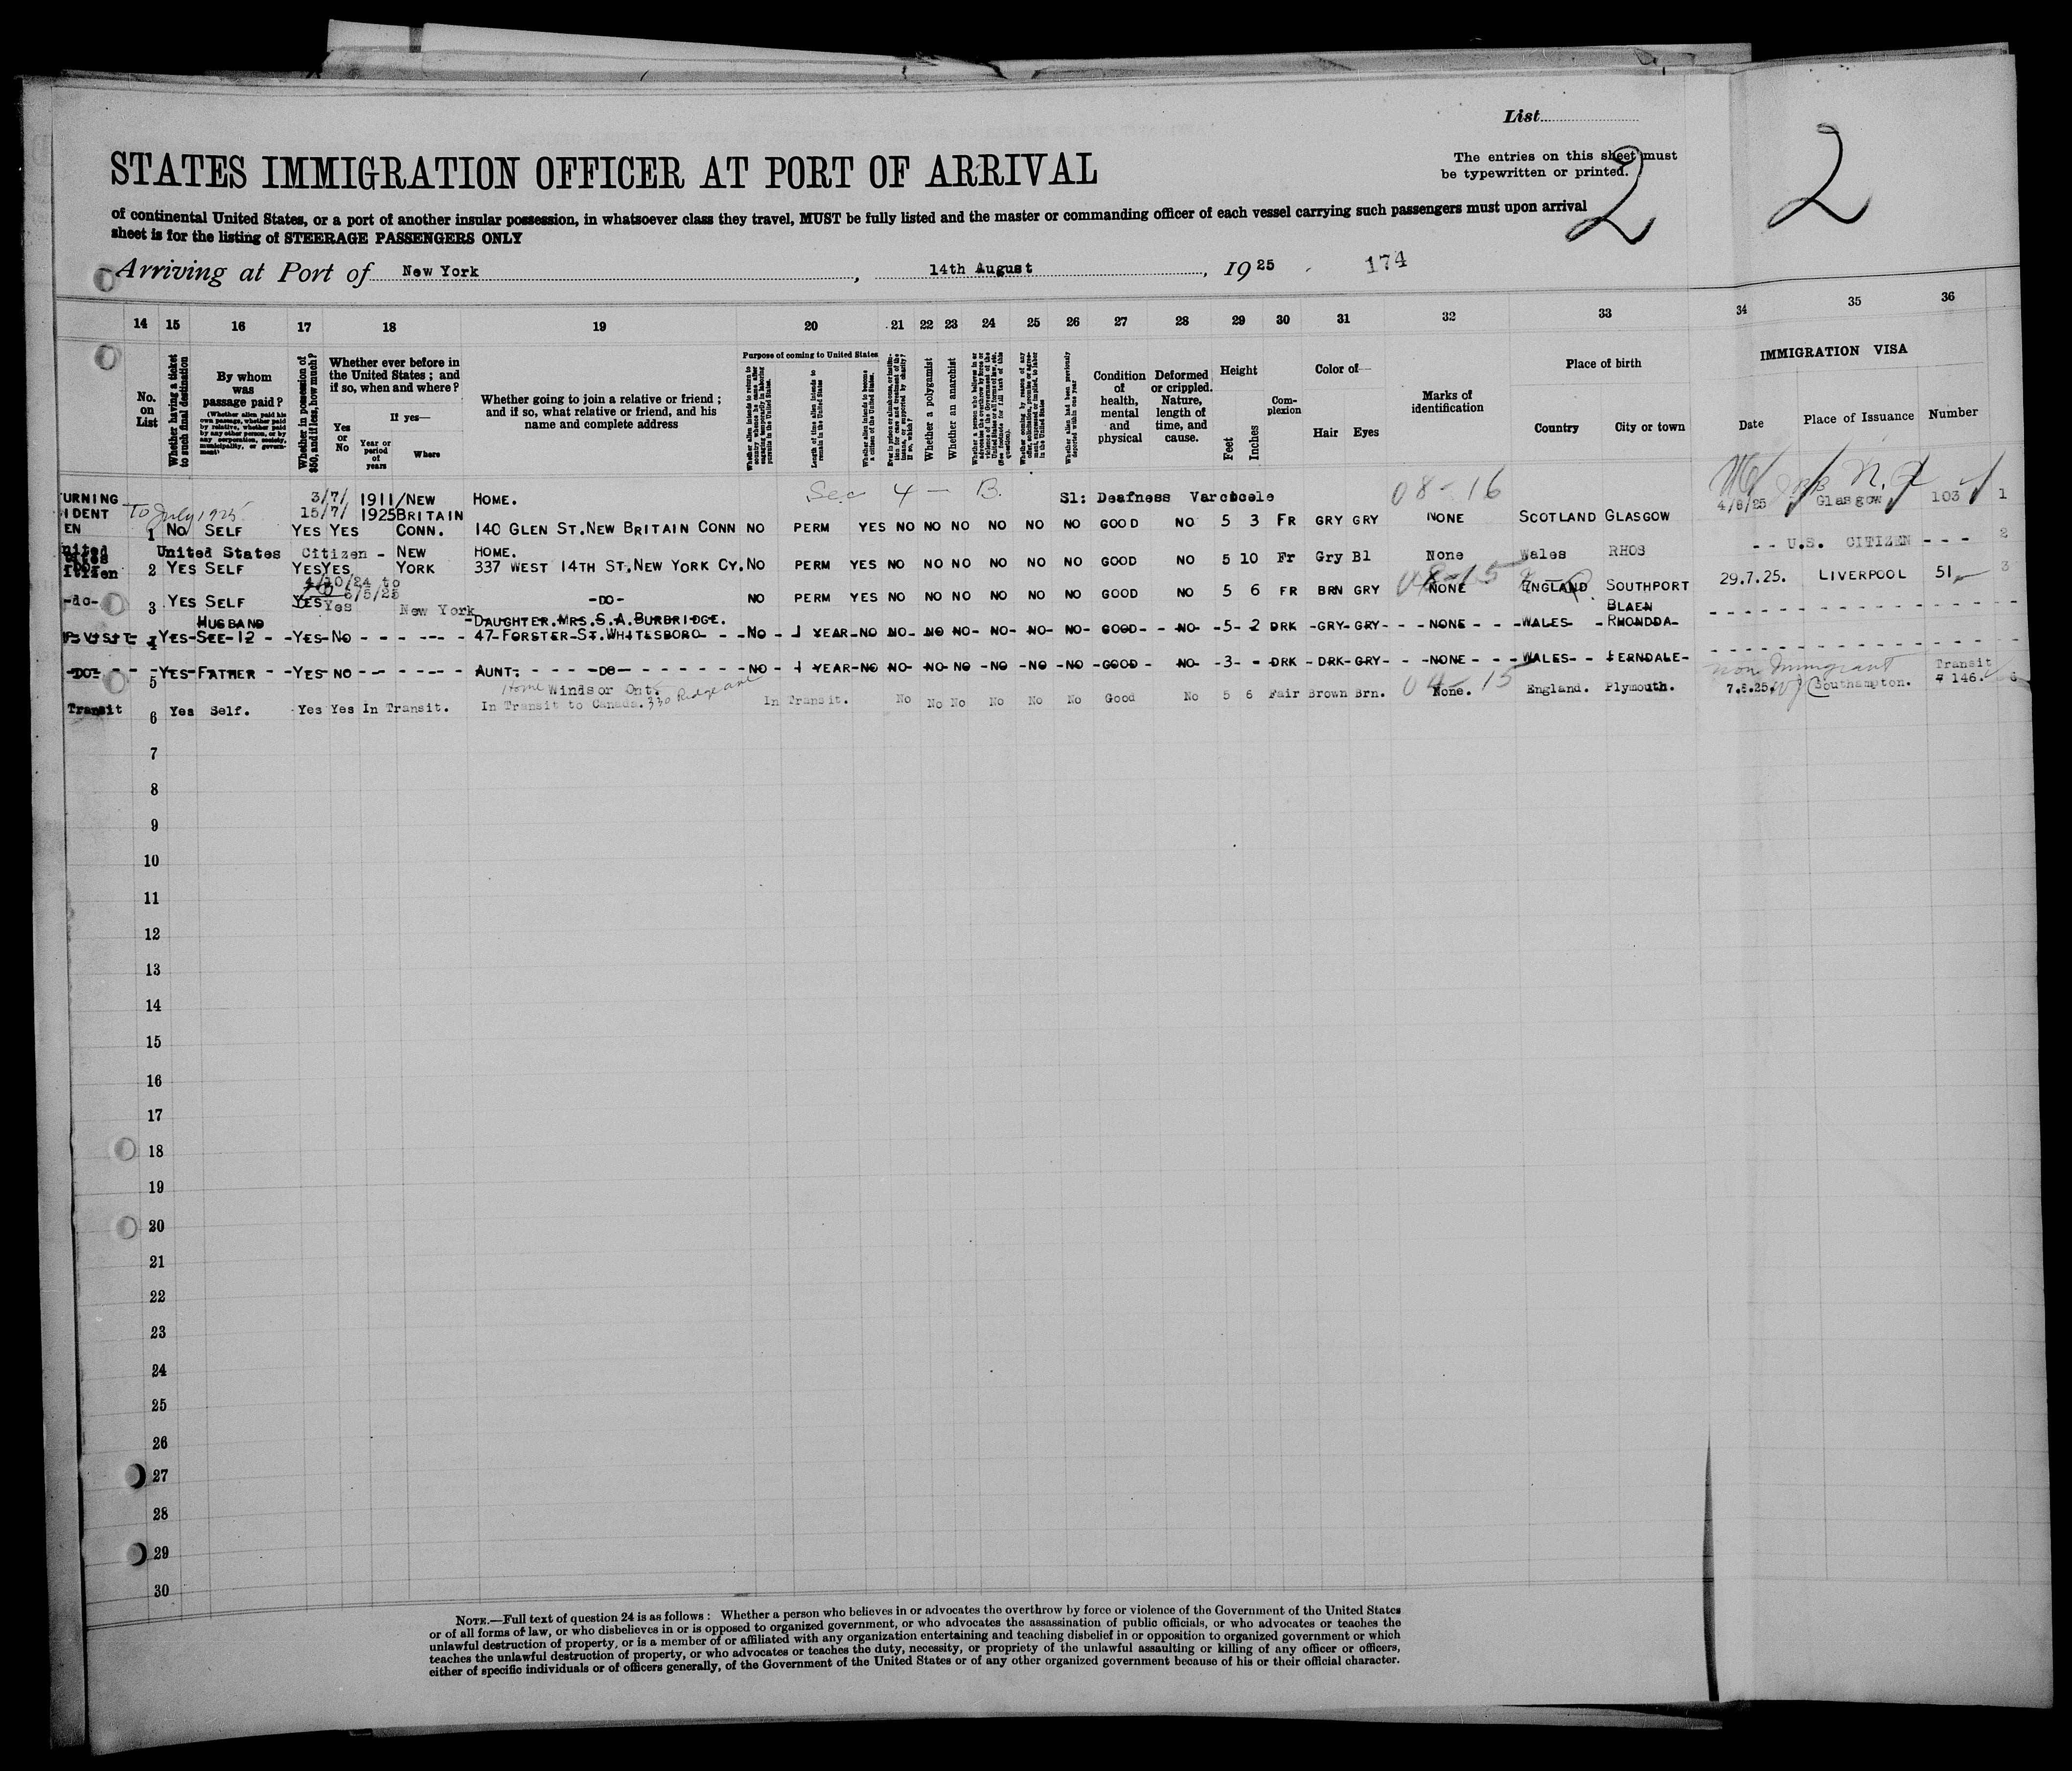 List
STATES IMMIGRATION OFFICER AT PORT OF ARRIVAL
The entries on this sheet must
be typewritten or printed.
2
2
of continental United States, or a port of another insular possession, in whatsoever class they travel, MUST be fully listed and the master or commanding officer of each vessel carrying such passengers must upon arrival
sheet is for the listing of STEERAGE PASSENGERS ONLY
Arriving at Port of New York, 14th August, 1925 174
14 15 16 17 18 19 20 21 22 23 24 25 26 27 28 29 30 31 32 33 34 35 36
No. on List
Whether having a ticket to such final destination
By whom was passage paid?
(Whether alien paid his own passage, whether paid by relative, whether paid by any other person, or by any corporation, society, municipality, or government)
Whether in possession of $50, and if less, how much?
Whether ever before in the United States; and if so, when and where?
Yes or No
If yes—
Year or period of years
Where
Whether going to join a relative or friend; and if so, what relative or friend, and his name and complete address
Purpose of coming to United States
Whether alien intends to return to country whence he came after engaging temporarily in laboring pursuits in the United States.
Length of time alien intends to remain in the United States
Whether alien intends to become a citizen of the United States.
Whether a polygamist
Whether an anarchist
Whether alien had been previously deported within one year
Condition of health, mental and physical
Deformed or crippled. Nature, length of time, and cause.
Height
Feet
Inches
Complexion
Color of—
Hair
Eyes
Marks of identification
Place of birth
Country
City or town
IMMIGRATION VISA
Date
Place of Issuance
Number
URNING 3/7/ 1911/NEW HOME. Sec 4 - B. S1: Deafness 08-16
IDENT To July 1925 15/7/ 1925 BRITAIN 4/8/25 Glasgow 103 1
EN 1 NO SELF YES YES CONN. 140 GLEN ST.NEW BRITAIN CONN NO PERM YES NO NO NO NO NO NO GOOD NO 5 3 FR GRY GRY NONE SCOTLAND GLASGOW
United States Citizen - NEW HOME. -- U.S. CITIZEN --- 2
2 YES SELF YES YES, YORK 337 WEST 14TH ST.NEW YORK CY. NO PERM YES NO NO NO NO NO NO GOOD NO 5 10 Fr Gry Bl None Wales RHOS
4/10/24 to 6/5/25 08-15
-do- 3 YES SELF YES Yes New York -DO- NO PERM YES NO NO NO NO NO NO GOOD NO 5 6 FR BRN GRY NONE ENGLAND SOUTHPORT 29.7.25. LIVERPOOL 51 3
HUSBAND DAUGHTER.MRS.S.A.BURBRIDGE. BLAEN
VISIT 4 YES-SEE-12 - -YES-NO - - - 47-FORSTER-ST.WHITESBORO- - -NO - 1 YEAR-NO NO- NO NO- NO- NO- NO- GOOD- - NO- -5- 2 DRK -GRY-GRY- - - NONE - - -WALES- -RHONDDA-
-DO- 5 YES-FATHER - -YES-NO - - - AUNT- - - - -DO- - - - -NO - 1 YEAR-NO NO- NO-NO -NO -NO -NO -GOOD- NO- -3- - -DRK -DRK-GRY- - -NONE- - - -WALES- - FERNDALE-
Home Windsor Ont. 04-15 non Immigrant Transit
Transit 6 Yes Self. Yes Yes In Transit. In Transit to Canada. 330 In Transit. No No No No No No Good No 5 6 Fair Brown Brn. None. England. Plymouth. 7.8.25. Southampton. # 146. 6
7
8
9
10
11
12
13
14
15
16
17
18
19
20
21
22
23
24
25
26
27
28
29
30
NOTE.—Full text of question 24 is as follows: Whether a person who believes in or advocates the overthrow by force or violence of the Government of the United States
or of all forms of law, or who disbelieves in or is opposed to organized government, or who advocates the assassination of public officials, or who advocates or teaches the
unlawful destruction of property, or is a member of or affiliated with any organization entertaining and teaching disbelief in or opposition to organized government or which
teaches the unlawful destruction of property, or who advocates or teaches the duty, necessity, or propriety of the unlawful assaulting or killing of any officer or officers,
either of specific individuals or of officers generally, of the Government of the United States or of any other organized government because of his or their official character.